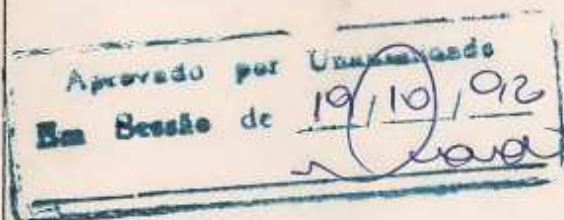 Aprovado por Unanimidade
Em Sessão de 19/10/92